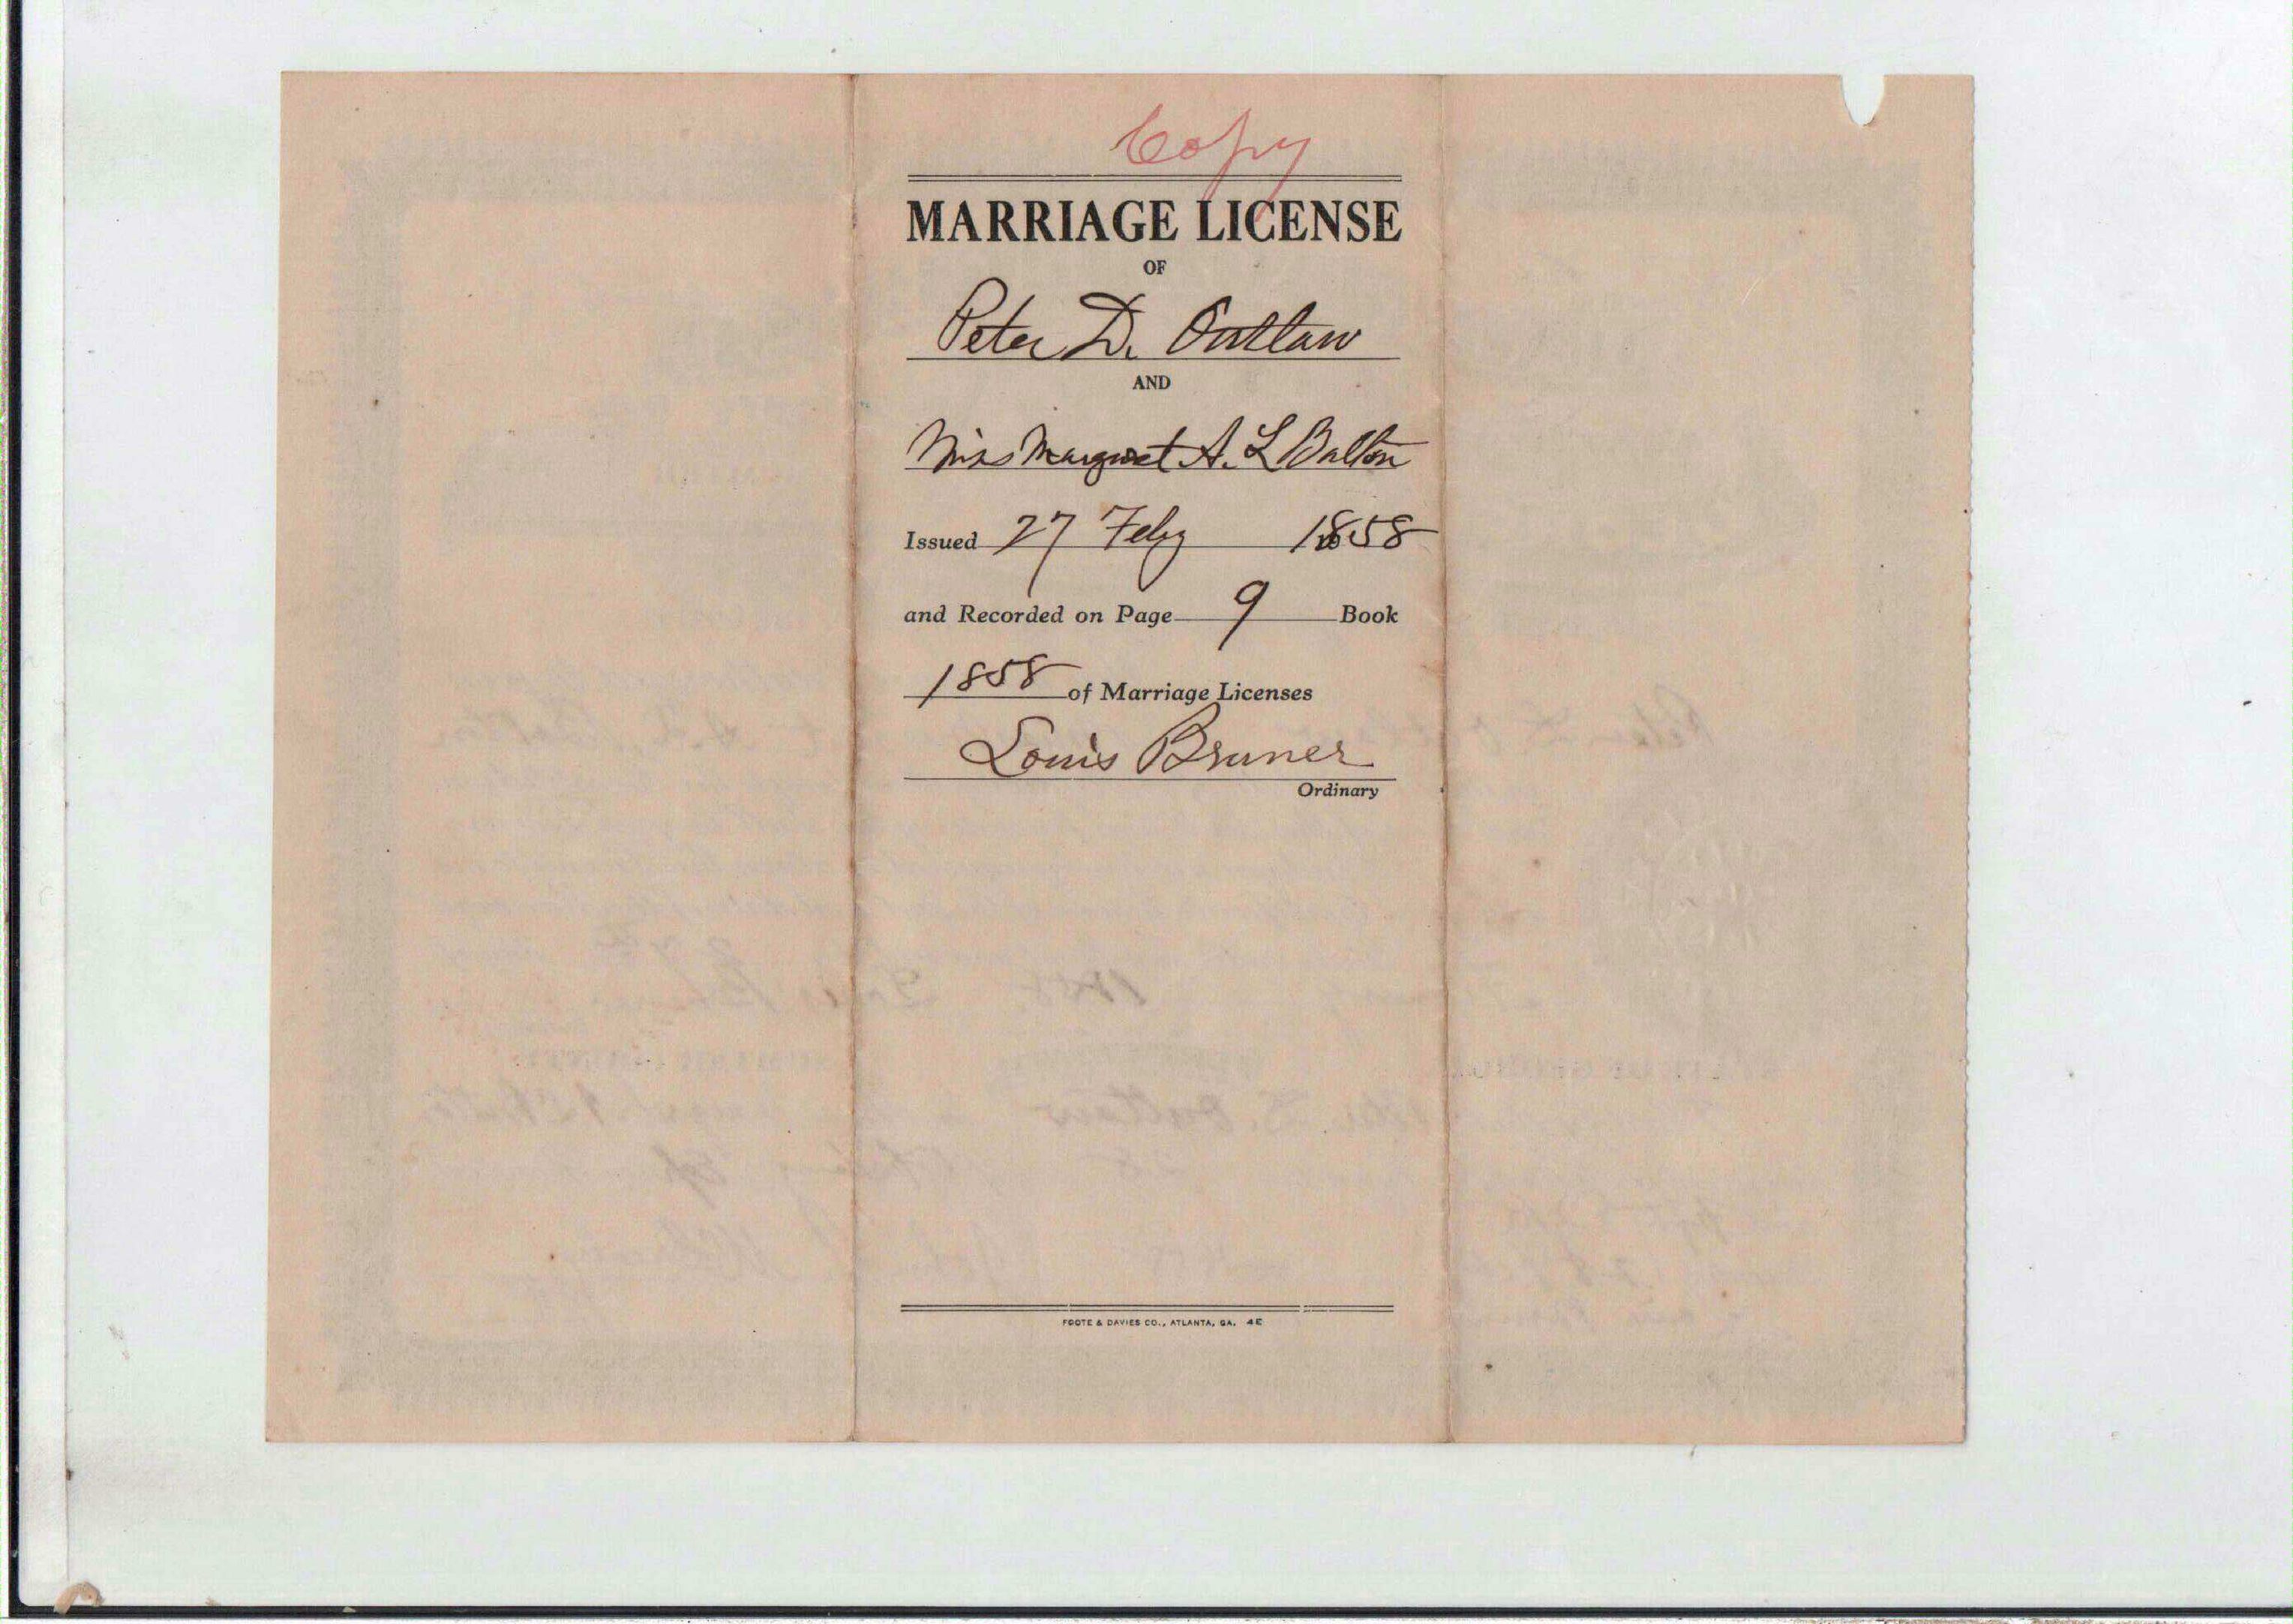 Copy
MARRIAGE LICENSE
OF
Peter D. Outlaw
AND
Miss Margret A. L Balton
Issued 27 Feby 1858
and Recorded on Page 9 Book
1858 of Marriage Licenses
Louis Bruner
Ordinary
FOOTE & DAVIES CO., ATLANTA, GA. 4E